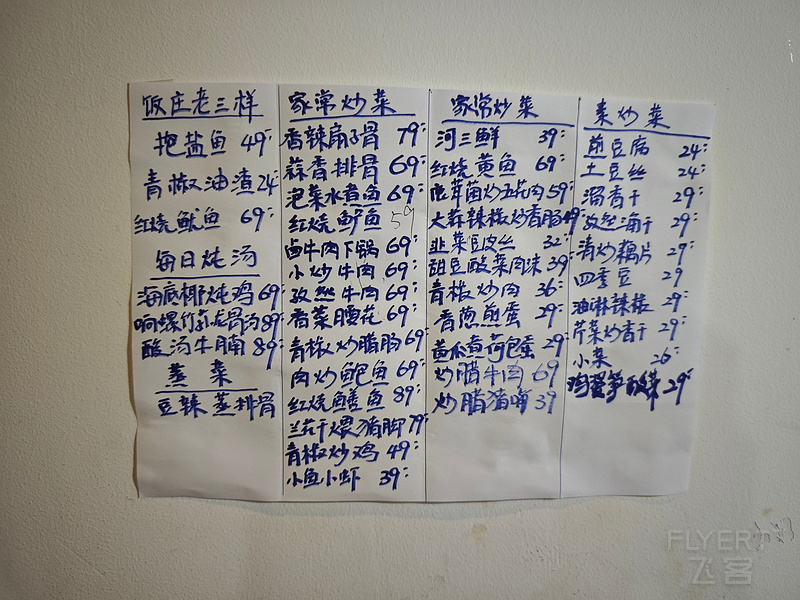 饭庄老三样
把盐鱼 49:
青椒油渣 24:
红烧鱿鱼 69:
每日炖汤
海底椰炖鸡 69:
响螺竹荪龙骨汤 89:
酸汤牛腩 89:
蒸菜
豆辣蒸排骨
家常炒菜
香辣扇子骨 79:
蒜香排骨 69:
泡菜水煮鱼 69:
红烧鲈鱼 59
卤牛肉下锅 69:
小炒牛肉 69:
孜丝牛肉 69:
香菜腰花 69:
青椒炒腊肠 69:
肉炒鲍鱼 69:
红烧鳝鱼 89:
兰花干煨猪脚 79:
青椒炒鸡 49:
小鱼小虾 39:
家常炒菜
河三鲜 39:
红烧黄鱼 69:
鹿茸菌炒五花肉 59:
大蒜辣椒炒香肠 49:
韭菜豆皮丝 32:
甜豆酸菜肉沫 39:
青椒炒肉 36:
香葱煎蛋 29:
黄瓜煮荷包蛋 29:
炒腊牛肉 69
炒腊猪嘴 39
素炒菜
煎豆腐 24:
土豆丝 24:
溜香干 29:
孜丝油干 29:
清炒藕片 29:
四季豆 29
油淋辣椒 29:
芹菜炒香干 29:
小菜 26:
酸菜 29:
FLYERT
飞客